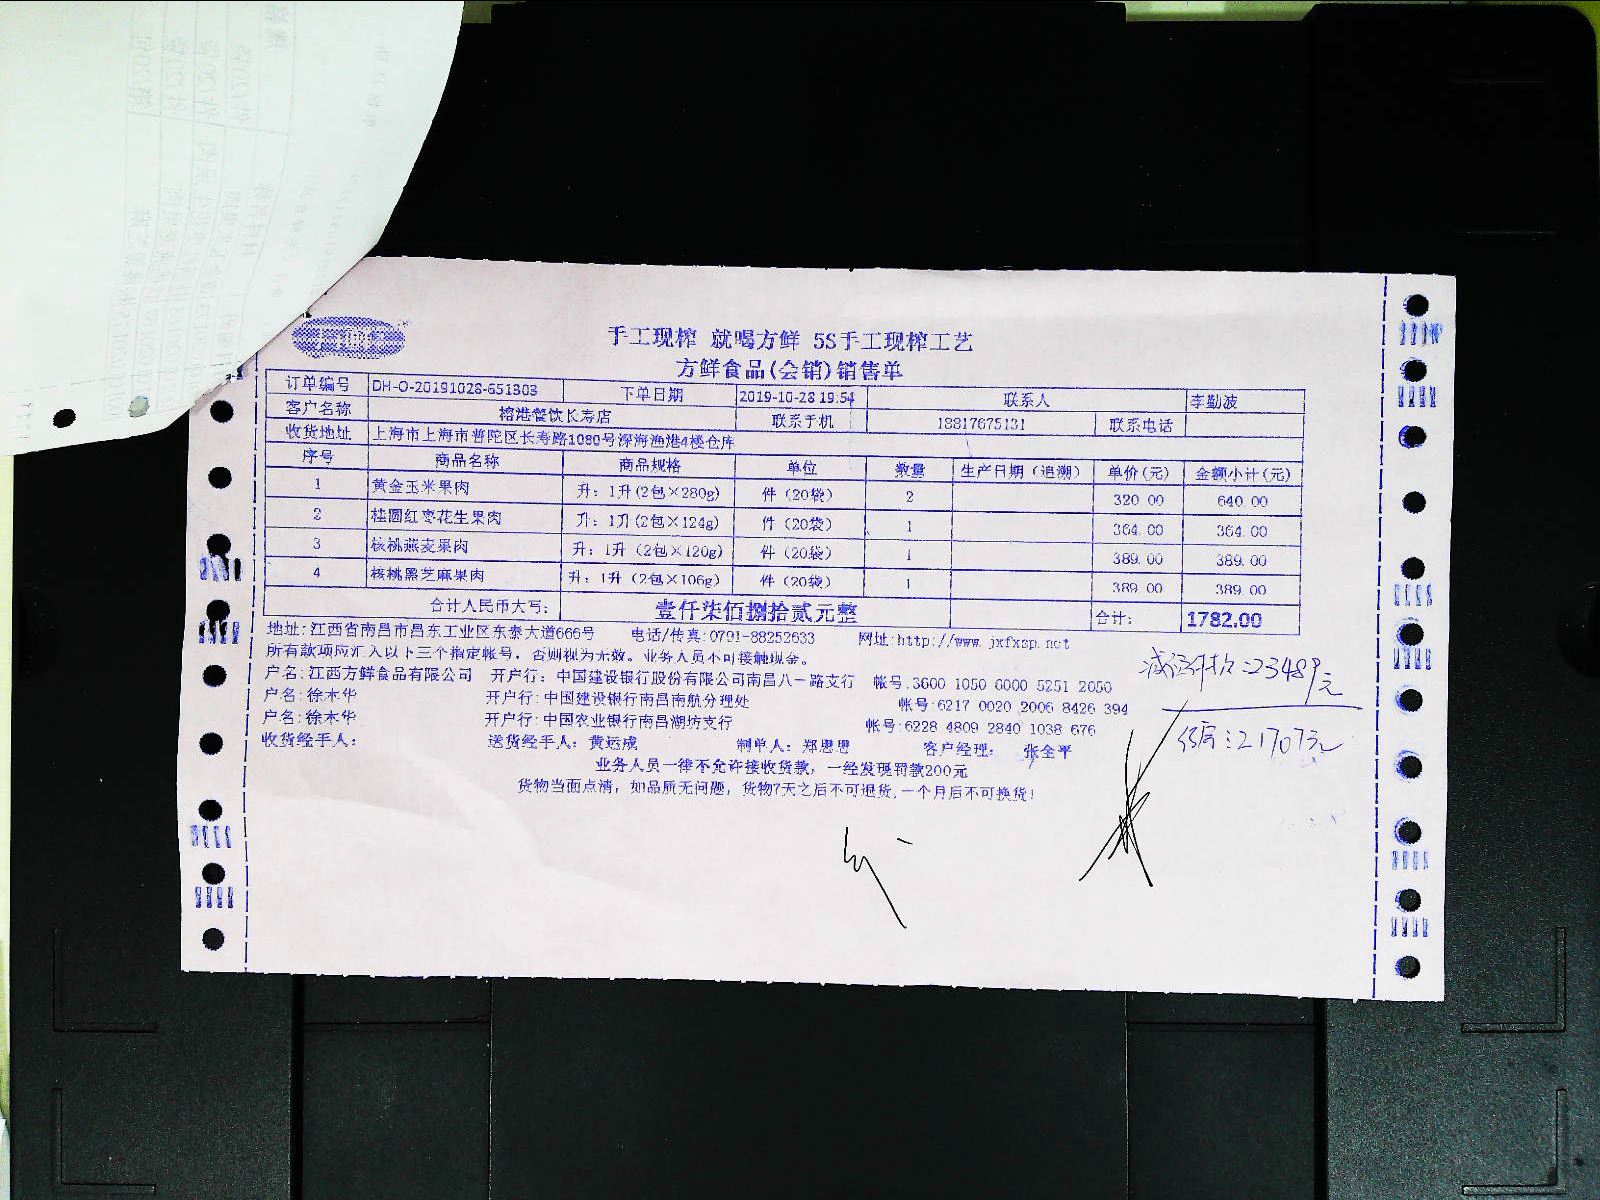 手工现榨 就喝方鲜 5S手工现榨工艺
方鲜食品(会销)销售单
订单编号 DH-O-20191028-651303 下单日期 2019-10-28 19:54 联系人 李勤波
客户名称 榕港餐饮长寿店 联系手机 18817675131 联系电话
收货地址 上海市上海市普陀区长寿路1080号深海渔港4楼仓库
序号 商品名称 商品规格 单位 数量 生产日期（追溯） 单价(元) 金额小计(元)
1 黄金玉米果肉 升：1升(2包×280g) 件（20袋） 2 320.00 640.00
2 桂圆红枣花生果肉 升：1升(2包×124g) 件（20袋） 1 364.00 364.00
3 核桃燕麦果肉 升：1升（2包×120g） 件（20袋） 1 389.00 389.00
4 核桃黑芝麻果肉 升：1升（2包×106g） 件（20袋） 1 389.00 389.00
合计人民币大写： 壹仟柒佰捌拾贰元整 合计： 1782.00
地址：江西省南昌市昌东工业区东泰大道666号 电话/传真：0791-88252633 网址：http://www.jxfxsp.net
所有款项应汇入以下三个指定帐号，否则视为无效。业务人员不可接触现金。
户名：江西方鲜食品有限公司 开户行：中国建设银行股份有限公司南昌八一路支行 帐号.3600 1050 6000 5251 2050
户名：徐木华 开户行：中国建设银行南昌南航分理处 帐号：6217 0020 2006 8426 394
户名：徐木华 开户行：中国农业银行南昌湖坊支行 帐号：6228 4809 2840 1038 676
收货经手人： 送货经手人：黄运成 制单人：郑思思 客户经理： 张全平
业务人员一律不允许接收货款，一经发现罚款200元
货物当面点清，如品质无问题，货物7天之后不可退货,一个月后不可换货！